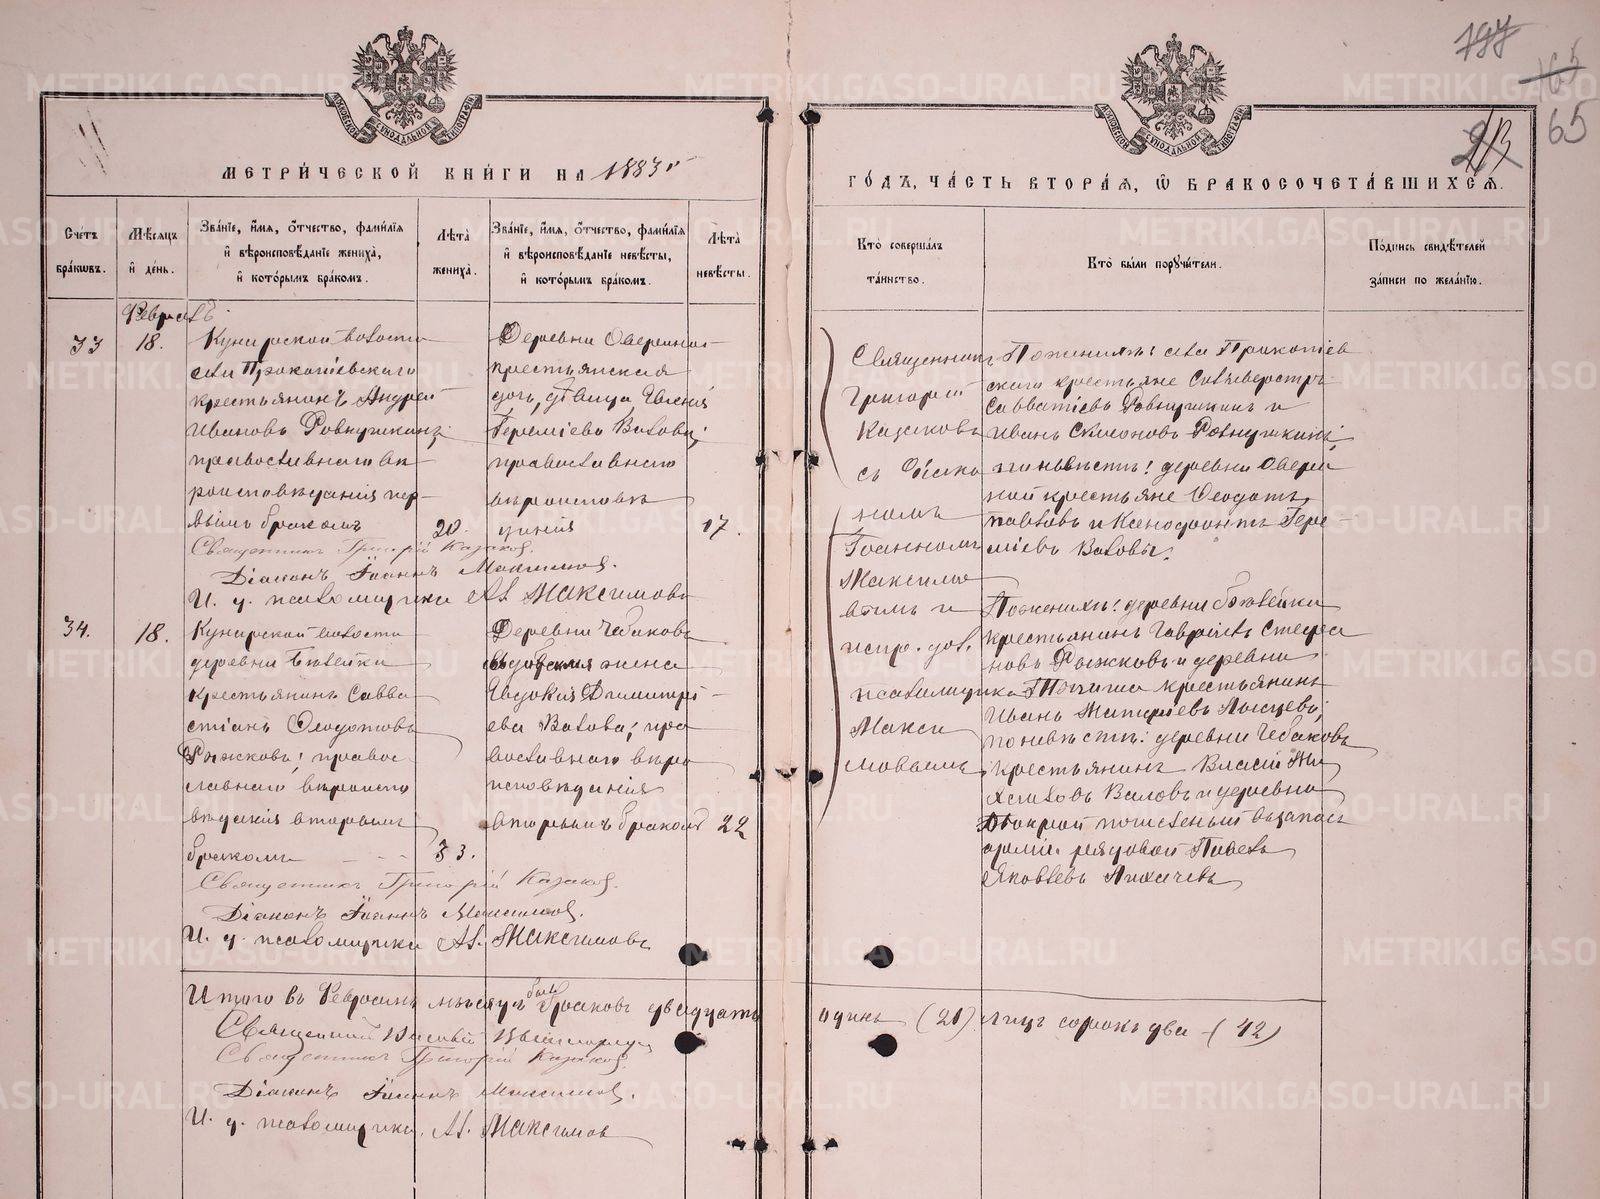 197
165
65
213
МОСКОВСКОЙ СѴНОДАЛЬНОЙ ТИПОГРАФІИ
МОСКОВСКОЙ СѴНОДАЛЬНОЙ ТИПОГРАФІИ
МЕТРИ́ЧЕСКОЙ КНИ́ГИ НА 1883 г
ГО́ДЪ, ЧА́СТЬ ВТОРА́Я, Ѿ БРАКОСОЧЕТА́ВШИХСЯ.
Сче́тъ бра́кѡвъ.
Мѣ́сяцъ и҆ де́нь.
Зва́ніе, и҆́мя, ѻ҆́тчество, фами́лія и҆ вѣроисповѣ́даніе жениха̀, и҆ кото́рымъ бра́комъ.
Лѣ́та жениха̀.
Зва́ніе, и҆́мя, ѻ҆́тчество, фами́лія и҆ вѣроисповѣ́даніе невѣ́сты, и҆ кото́рымъ бра́комъ.
Лѣ́та невѣ́сты.
Кто̀ соверша́лъ та́инство.
Кто̀ бы́ли поручи́тели.
По́дпись свидѣ́телей за́писи по жела́нію.
Февраль
33
18.
Кунарской волости
села Прокопіевскаго
крестьянинъ Андрей
Ивановъ Ровнушкинъ;
православнаго вѣ
роисповѣданія пер-
вымъ бракомъ
20.
Деревни Овериной
крестьянская
дочь, дѣвица, Евгенія
Іереміева Валова;
православнаго
вѣроисповѣ
данія
17.
Священникъ
Григорій
Казаковъ
съ діако
номъ
Іоанномъ
Максимо
вымъ и
испр. дол.
псаломщика
Макси
мовымъ
По женихѣ: села Прокопіев
скаго крестьяне Селиверстръ
Савватіевъ Ровнушкинъ и
Иванъ Ровнушкинъ;
по невѣстѣ: деревни Овери
ной крестьяне Ѳеодотъ
Павловъ и Ксенофонтъ Іере-
міевъ Валовы.
Священникъ Григорій Казаковъ.
Діаконъ Іоаннъ Максимовъ.
И. д. псаломщика Ал. Максимовъ
34.
18.
Кунарской волости
деревни Белейки
крестьянинъ Савва
стіанъ Ѳеодотовъ
Рыжковъ; правос
лавнаго вѣроиспо
вѣданія вторымъ
бракомъ
33.
Деревни Чебаковой
вдовская жена
Евдокія Димитрі-
ева Валова; пра
вославнаго вѣро
исповѣданія
вторымъ бракомъ
22
По женихѣ: деревни Белейки
крестьянинъ Гавріилъ Стефа
новъ Рыжковъ и деревни
крестьянинъ
Иванъ
по невѣстѣ: деревни Чебаковой
крестьянинъ Власій Ми
хаиловъ Валовъ и деревни
уволенный въ запасъ
арміи рядовой Павелъ
Яковлевъ Лихачевъ
Священникъ Григорій Казаковъ.
Діаконъ Іоаннъ Максимовъ.
И. д. псаломщика Ал. Максимовъ
Итого въ Февралѣ мѣсяцѣ было браковъ двадцать одинъ (21) лицъ сорокъ два - (42)
Священникъ
Священникъ Григорій Казаковъ.
Діаконъ Іоаннъ Максимовъ.
И. д. псаломщика. Ал. Максимовъ
METRIKI.GASO-URAL.RU